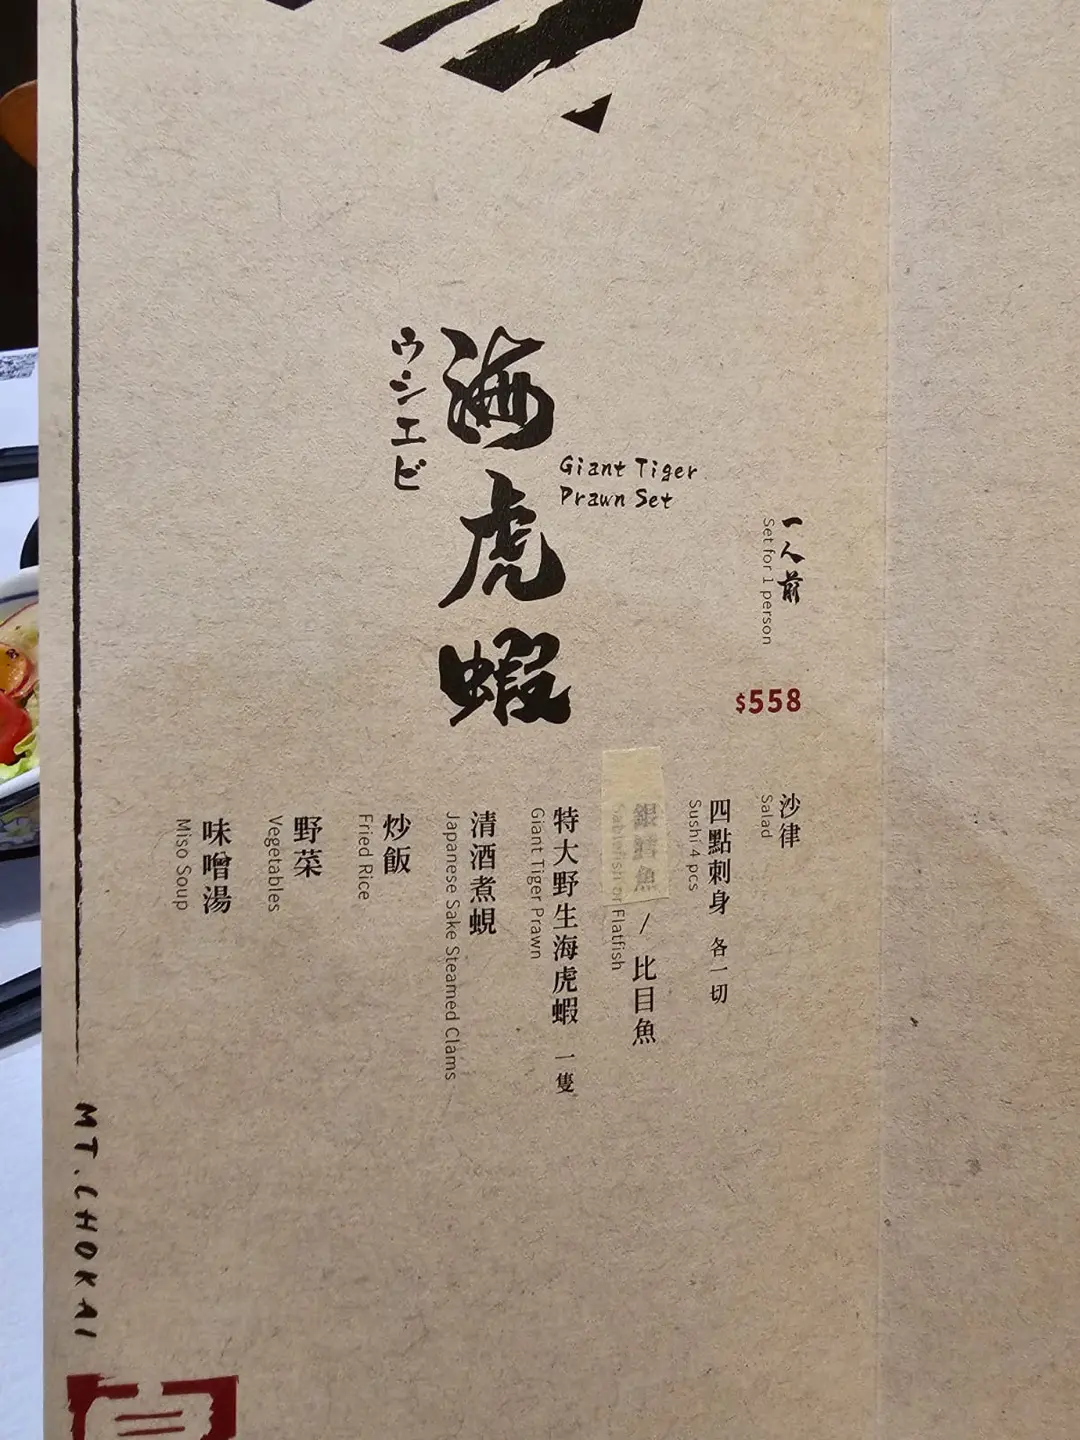 海虎蝦
ウシエビ
Giant Tiger
Prawn Set
一人前
Set for 1 person
$558
沙律
Salad
四點刺身 各一切
Sushi 4 pcs
銀鱈魚 / 比目魚
Sablefish or Flatfish
特大野生海虎蝦 一隻
Giant Tiger Prawn
清酒煮蜆
Japanese Sake Steamed Clams
炒飯
Fried Rice
野菜
Vegetables
味噌湯
Miso Soup
MT.CHOKAI